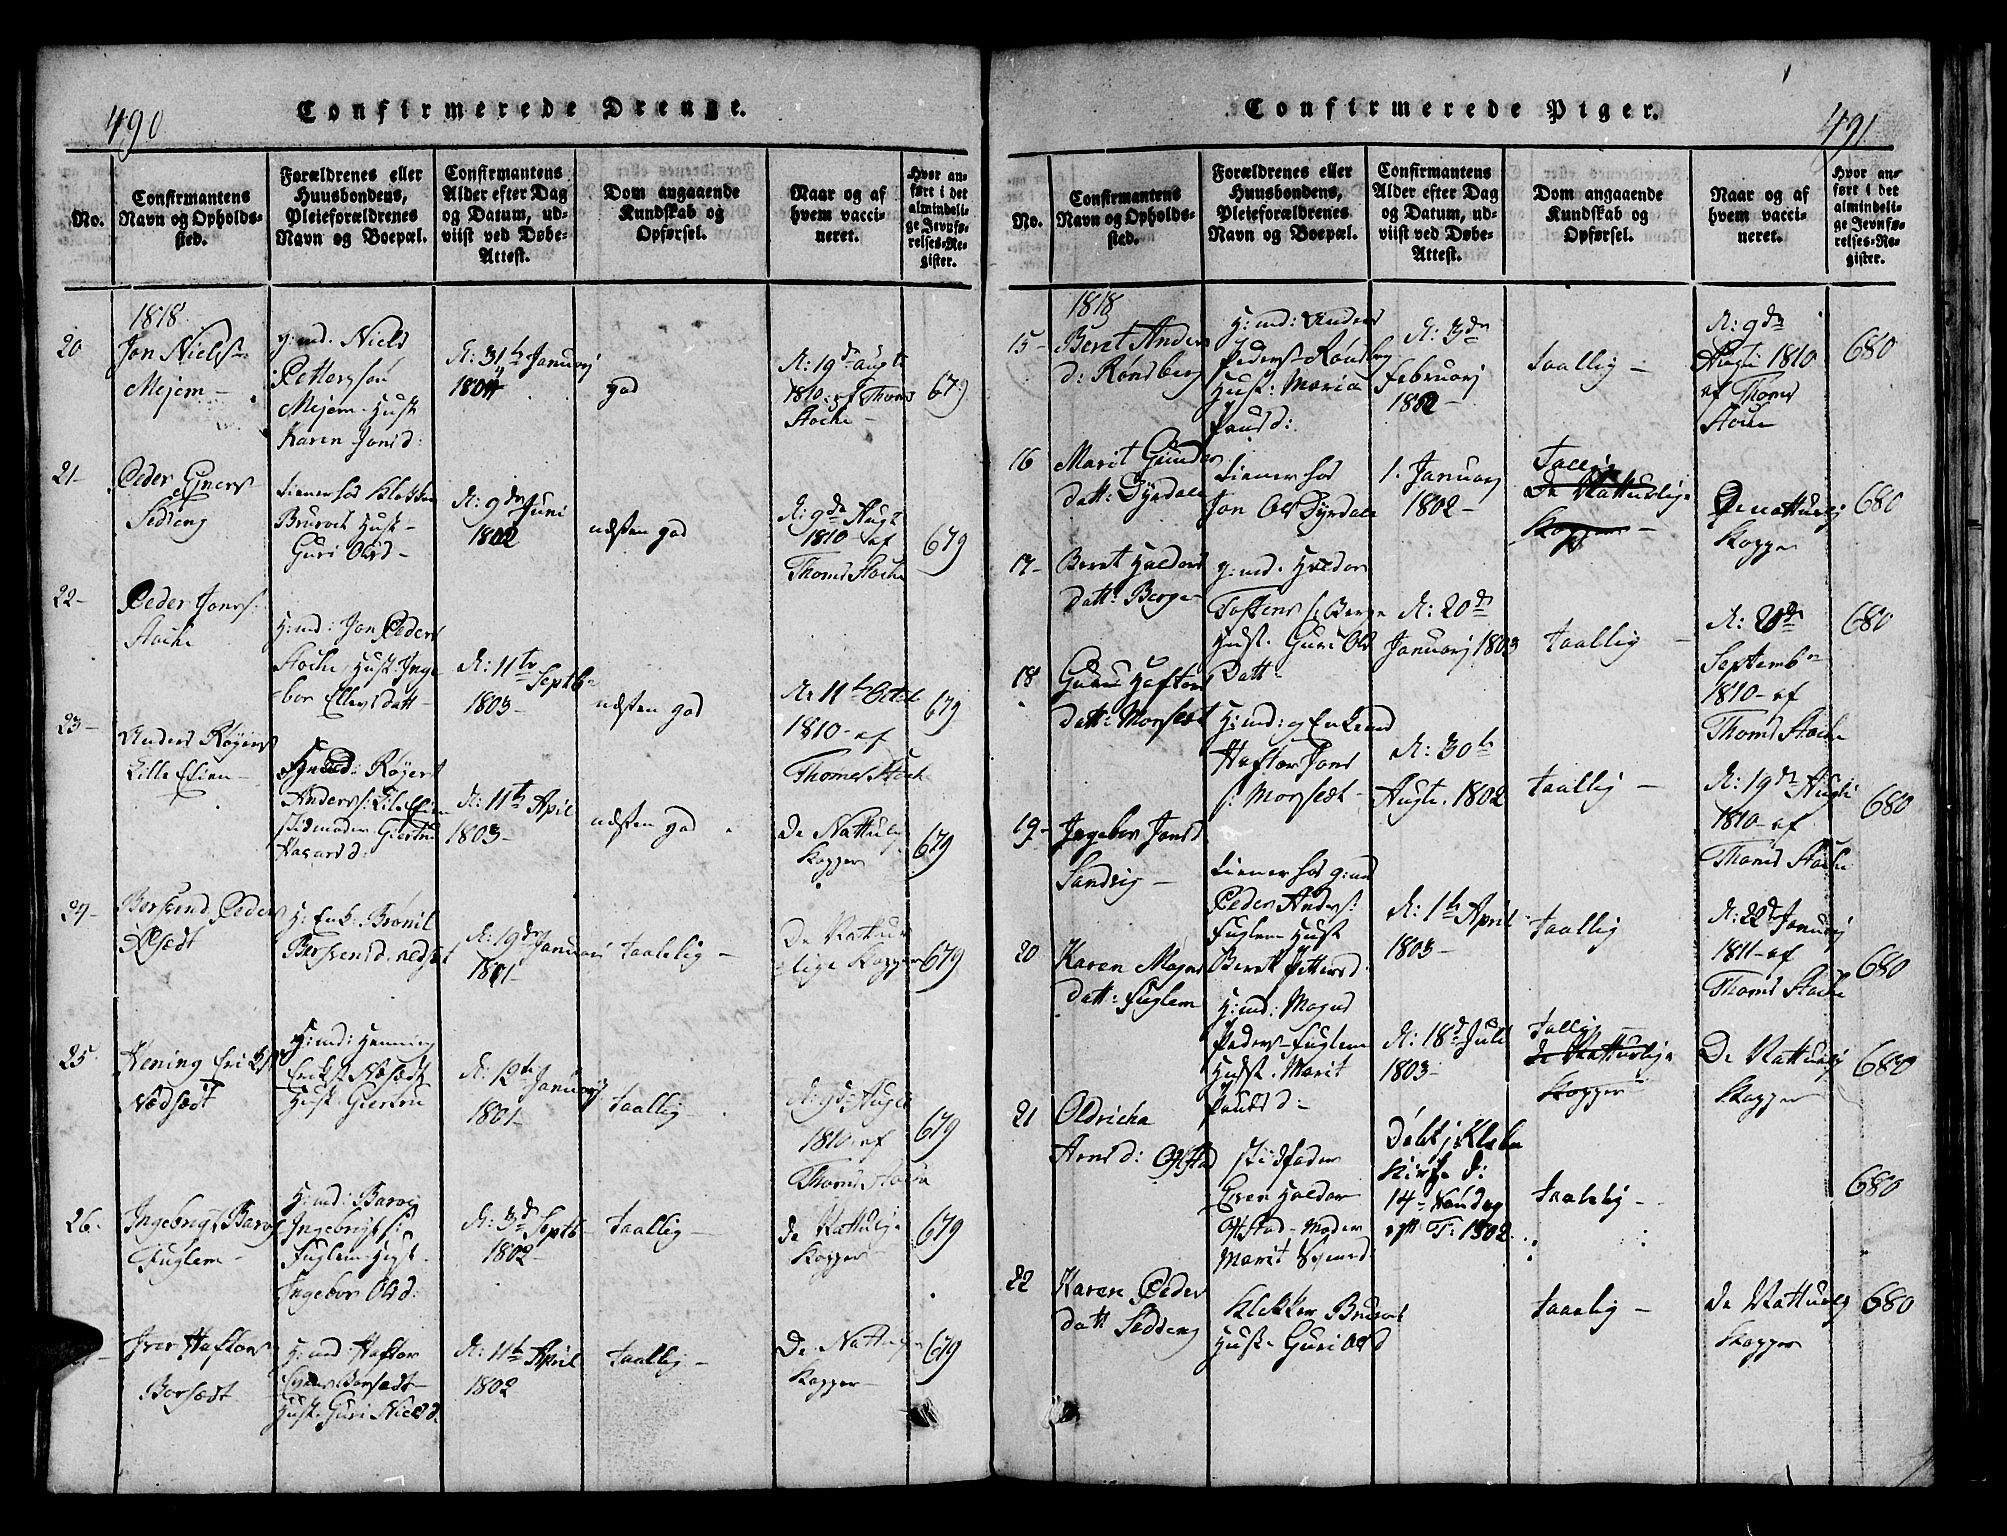 490
Confirmerede Drenge.
No.
Confirmantens
Navn og Opholds-
sted.
Forældrenes eller
Huusbondens,
Pleieforældrenes
Navn og Boepæl.
Confirmantens
Alder efter Dag
og Datum, ud-
viist ved Døbe-
Attest.
Dom angaaende
Kundskab og
Opførsel.
Naar og af
hvem vacci-
neret.
Hvor an-
ført i det
almindeli-
ge Jevnfø-
relses-Re-
gister.
1818
20
Jon Niels
Mejem -
g:md. Niels
Petterssøn
Mejem Hust
Karen Jonsd:
N: 31te Januarj
1804
god
N: 19de Augti
1810 af Thoms
Stoche -
679
21-
Peder
Sedseng
tiener hos Klokker
Brurvolt Hust-
Guri Olsd -
N: 9de Juni
1802
næsten god
N: 9de Augt
1810 - af
Thoms Stoche
679
22-
Peder Jons:
Stoche
H:md: Jon Peders
Stoche, Hust: Inge
-bor Ellevsdatt -
N: 11te Septb-
1803 -
næsten god
N: 11te Octob
1810 - af
Thomes Stoche
679
23-
Anders Røjers
Lille Elien -
H:md: Røjert
Anders: Lille Elien
stedmoder Giertru
Havarsd:
N: 11te April
1803 -
næsten god
De Nattulig
Kopper
679
24-
Børsend Peders
H: Enk: Brønil
Bersvensd.
N: 19de Januari
1801
taalelig -
De Nattur
-lige Kopper
679
25.
Hening Eriks
Nedsædt
H:md: Henning
Eriks: Nedsædt
Hust: Giertru
N: 12te Januarj
1801 -
taallig
N: 9d: Augti
1810 - af
Thoms Stoche
679
26-
Ingebrigt Baros
Fuglem -
H:md: Baro
Ingebrigts:
Fuglem Hust.
Ingebor Olsd:
N: 3de Septb
1802
taallig -
de Nattulige
Kopper
679
Iver Haftors
Borsædt
H:md Haftor
Borsædt -
Hust: Guri Nielsd
N: 11te April
1802
taallig -
De Nattulige
Kopper -
679
491
Confirmerede Piger.
No.
Confirmantens
Navn og Opholds-
sted.
Forældrenes eller
Huusbondens,
Pleieforældrenes
Navn og Boepæl.
Confirmantens
Alder efter Dag
og Datum, ud-
viist ved Døbe-
Attest.
Dom angaaende
Kundskab og
Opførsel.
Naar og af
hvem vacci-
neret.
Hvor an-
ført i det
almindeli-
ge Jevnfø-
relses-Re-
gister.
1818
15-
Beret Anders
d: Rønsberg
H:md: Anders
Peders- Rønsberg
Hust: Maria
Paulsd:
N: 3de
Februarj
1802
taallig -
N: 9de
1810
af Thoms
Stoche
680
16
Marit Gunder
datt: Dyrdale
tiener hos
Jon Ols Dyrdale
1. Januarj
1802 -
Taalig
De Natturlige
Kopper -
De nattulig
Kopper
680
17-
Beret Haldors
datt: Berge
g:md. Haldor
Tostens: Berge
Hust. Guri Ols
Datt -
N: 20de
Januarj 1803
taallig -
N: 20de
Septemb-
1810 - af
Thoms Stoche
680
18
Guru Haftors
datt: Morsedt
H:md: og Enkemd
Haftor Jons
: Morsædt -
N: 30te
Augti. 1802
taallig -
N: 19de Augti
1810 - af
Thoms Stoche
680
19-
Ingebor Jonsd
Sandvig -
tiener hos g:md
Peder Anders:
Fuglem Hust
Beret Pettersd.
N: 1te April
1803 -
taallig
N: 22de Januarj
1811 - af
Thoms Stoche
680
20
Karen Magns
datt: Fuglem
H:md: Magns
Peders- Fuglem
Hust. Marit
Paulsd:
N: 18de Juli
1803 -
taallig
de Natturlige
Kopper
De Nattulig
Kopper
680
21
Oldricha
Arnsd: Ofstad
stedfader
Haldor
Ofstad - Moder
Marit
Døbt j Klæbu
Kirke d:
14- Søndag
eft T: 1802.
taalelig -
680
22
Karen Peders
datt Sedseng
Klokker Brurvolt
Hust. Guri Olsd
taalig -
De Nattulig
Kopper
680